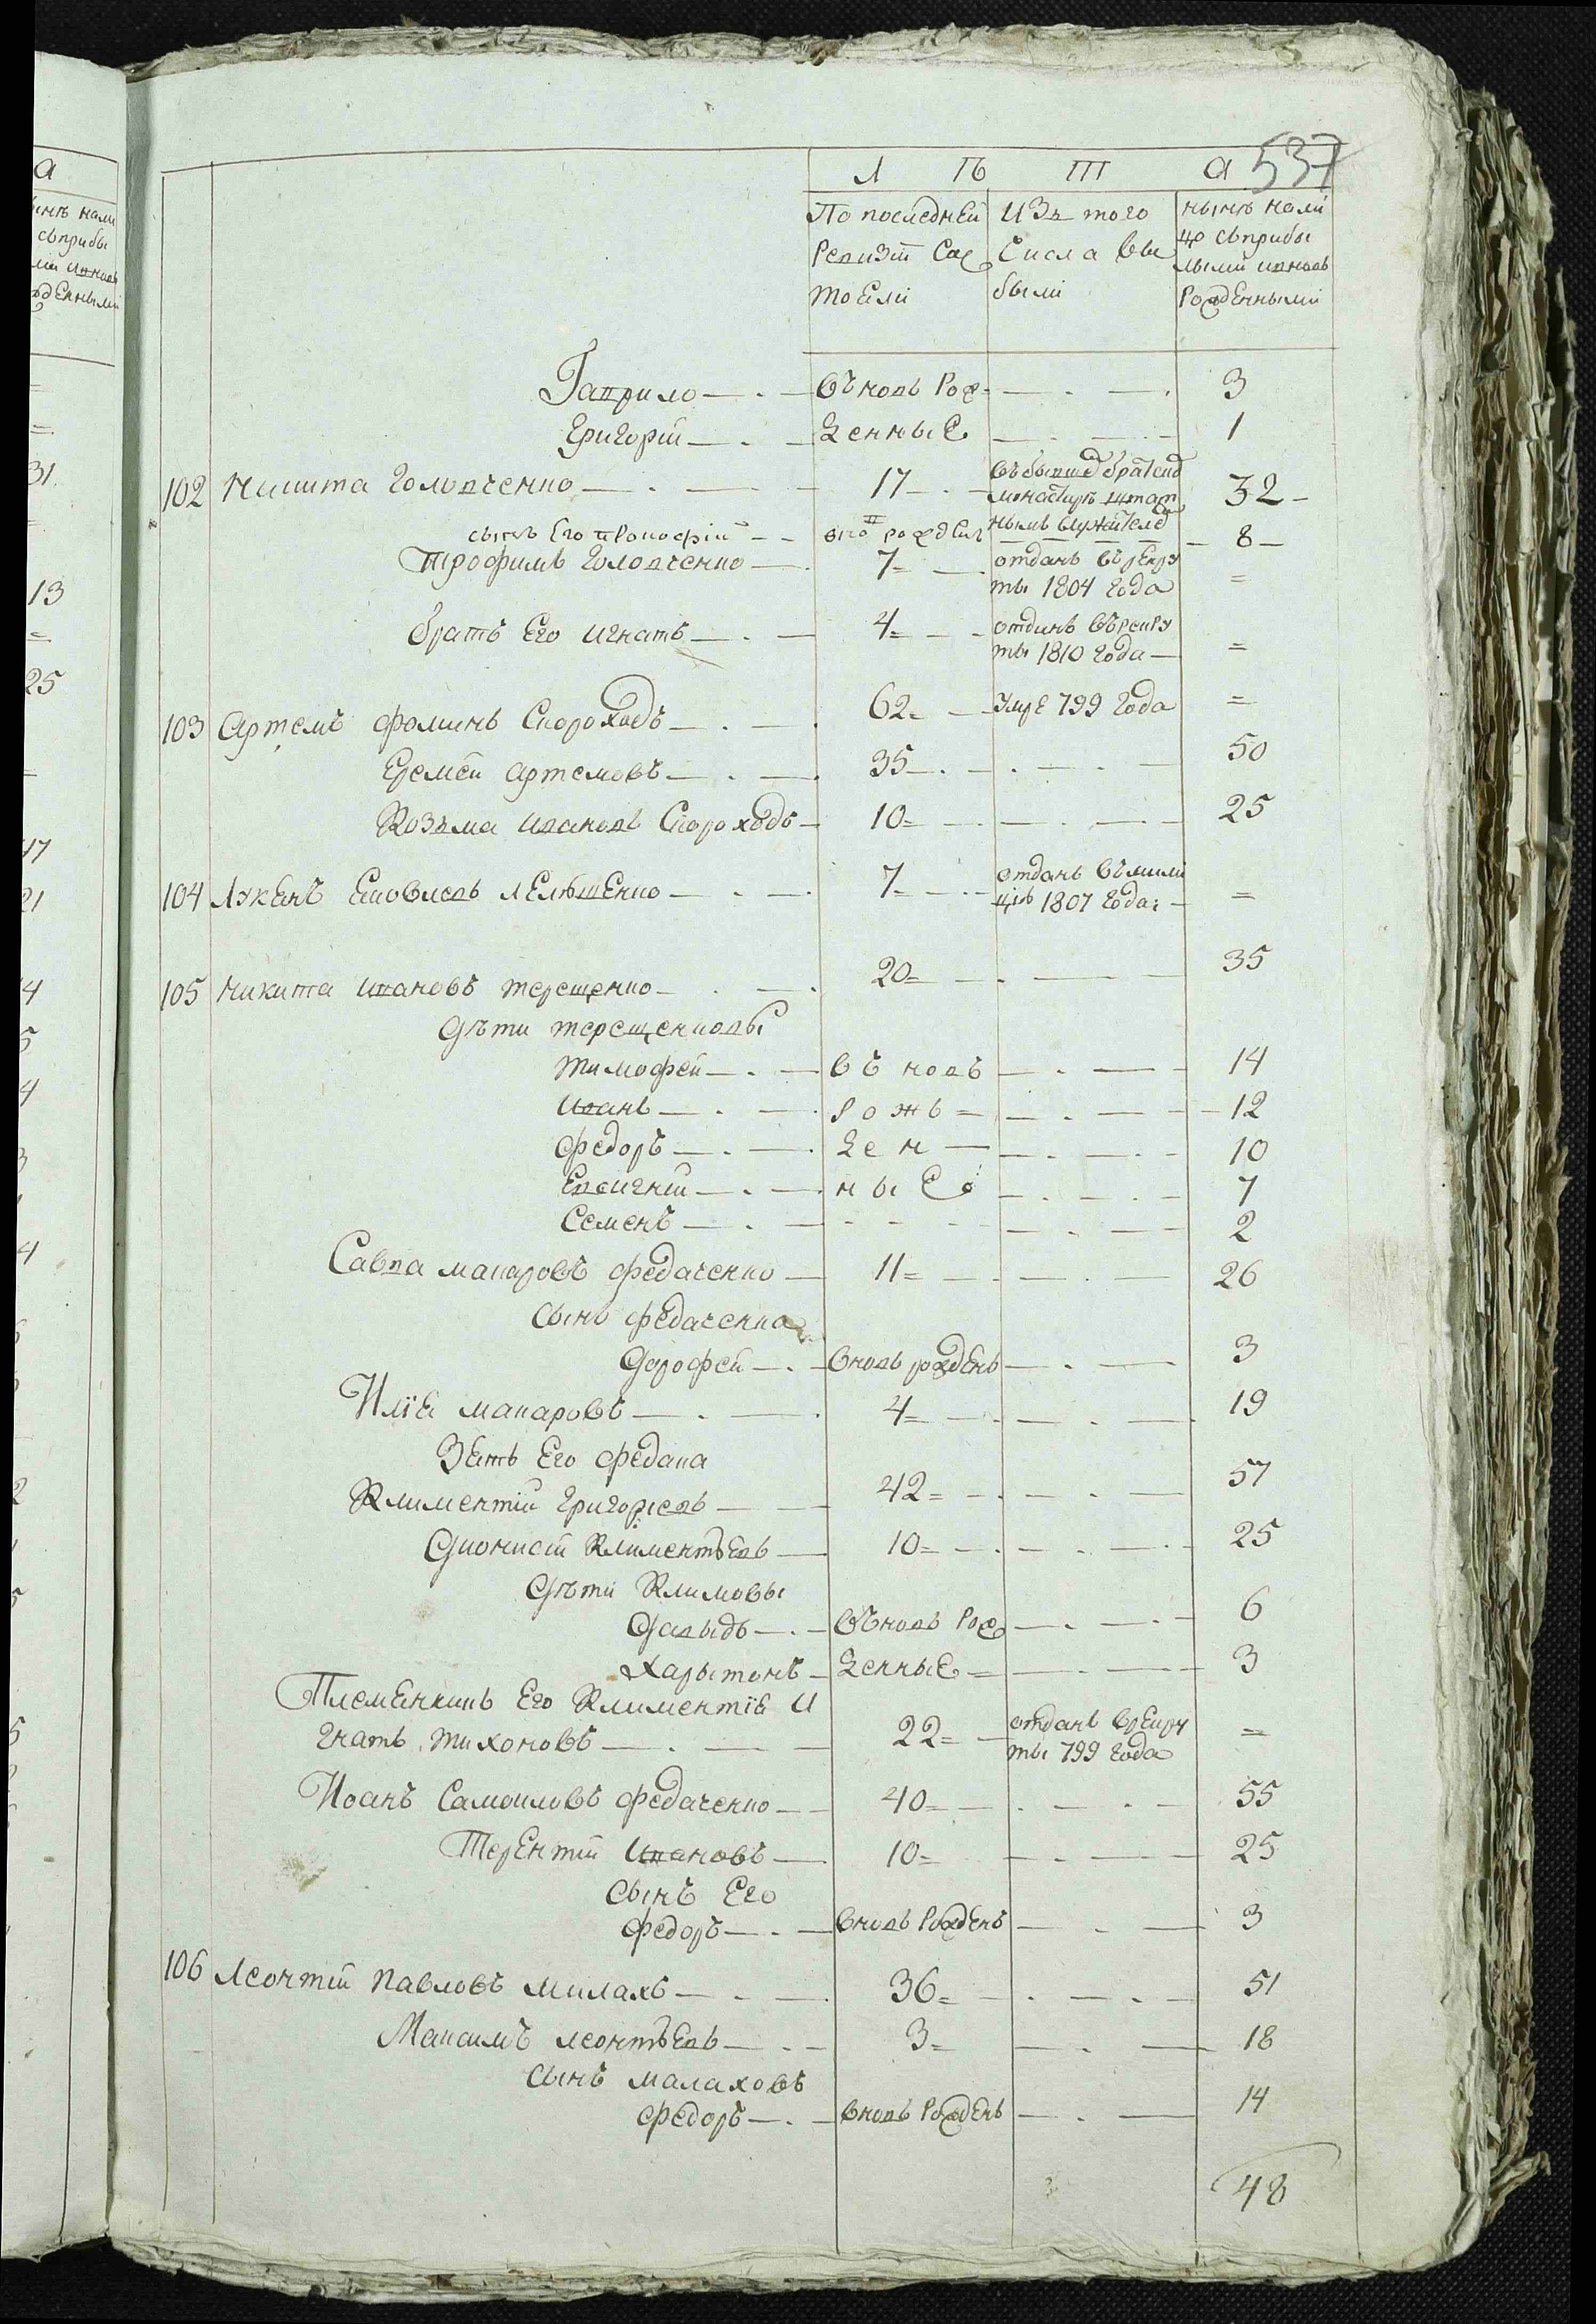 537
Л ѣ т а
По последней | Изъ того | нынѣ нали
Ревизіи Сос | Числа вы | цо съприбы
тоели | были | лыми ивновь
рожденными
Гаврило — . — Въновь Рож= — . — . 3
Григорій — . — денные — . — 1
102 Никита Голодченко — . — 17 — . — въбывшей братской 32 —
монастырь штат
сынъ Его Прокофій — — рожденъ нымъ служителемъ — 8 —
Трофимъ Голодченко — . 7= — отданъ върекру =
ты 1804 года
братъ Его Игнатъ — . — 4= — отданъ върекру =
ты 1810 года —
103 Артемъ Фоминъ Скороходъ — . — 62= — умре 799 года =
Еремей Артемовъ — . — 35 — . — . — . — 50
Козьма Ивановъ Скороходъ — 10= — . — . — 25
104 Яковлевъ — . — 7= — . — отданъ въмили =
цію 1807 года: —
105 Никита Ивановъ Терещенко — . — . 20= — . — — 35
Дѣти Терещенковы
Тимофей — . — въ новь — . — 14
Иванъ — . — рожь= — . — — 12
Федоръ — . — ден — — . — . 10
Евсигній — . — ные — . — . — 7
Семенъ — . — - - - — . — 2
Савва Макаровъ Федаченко — 11= — . — . — 26
Сынъ Федаченка
Дорофей — . — вновь рожденъ — . — 3
Илія Макаровъ — . — . 4= — . — . — . 19
Зять Его Федака
Климентій Григорьевъ — — 42= — . — . — 57
Дионисій Климентьевъ — 10= — . — . — . — 25
Дѣти Климовы
Давыдъ — . — Въновь Рож — . — . — 6
Харытонъ — денные= — . — . — 3
Племенникъ Его Климентія И
гнатъ Тихоновъ — . — — 22= — отданъ врекру =
ты 799 года
Иоанъ Самоиловъ Федаченко — — 40= — . — . — 55
Терентій Ивановъ — 10= — . — — 25
Сынъ Его
Федоръ — . — вновь Рожденъ — . — 3
106 Леонтій Павловъ Малахъ — . — . 36= — . — . — 51
Максимъ Леонтьевъ — . — 3= — . — 18
Сынъ Малаховъ
Федоръ — . — вновь Рожденъ — . — 14
48